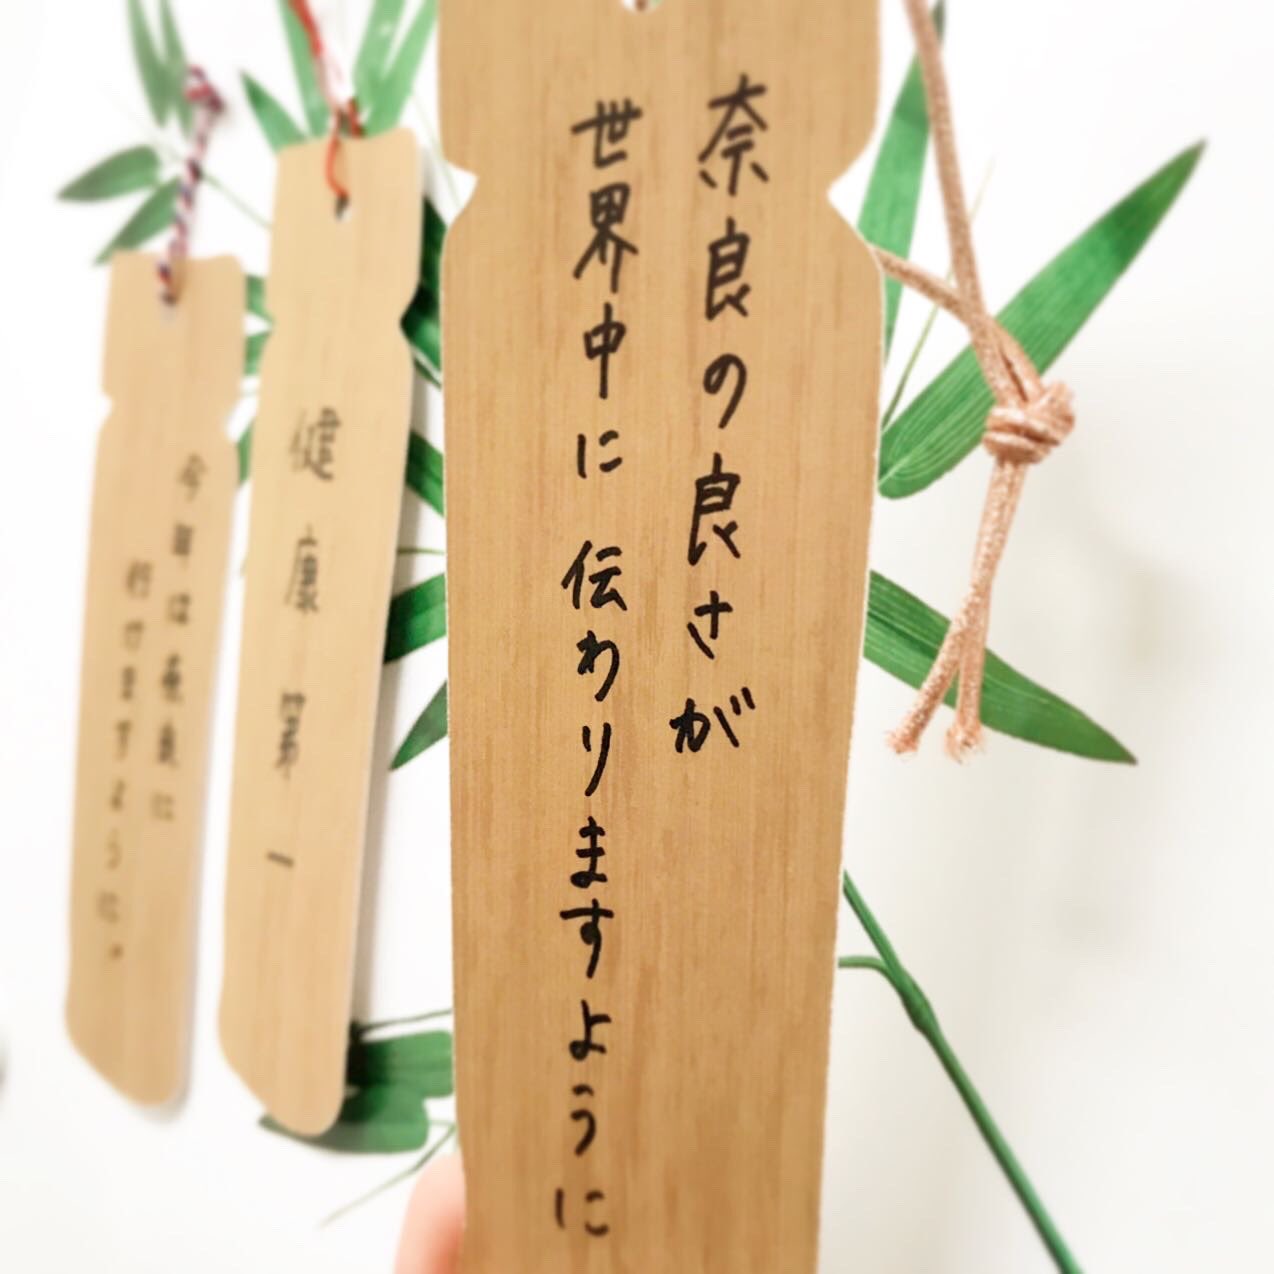 奈良の良さが
世界中に伝わりますように
健康第一
今年は奈良に
行けますように。